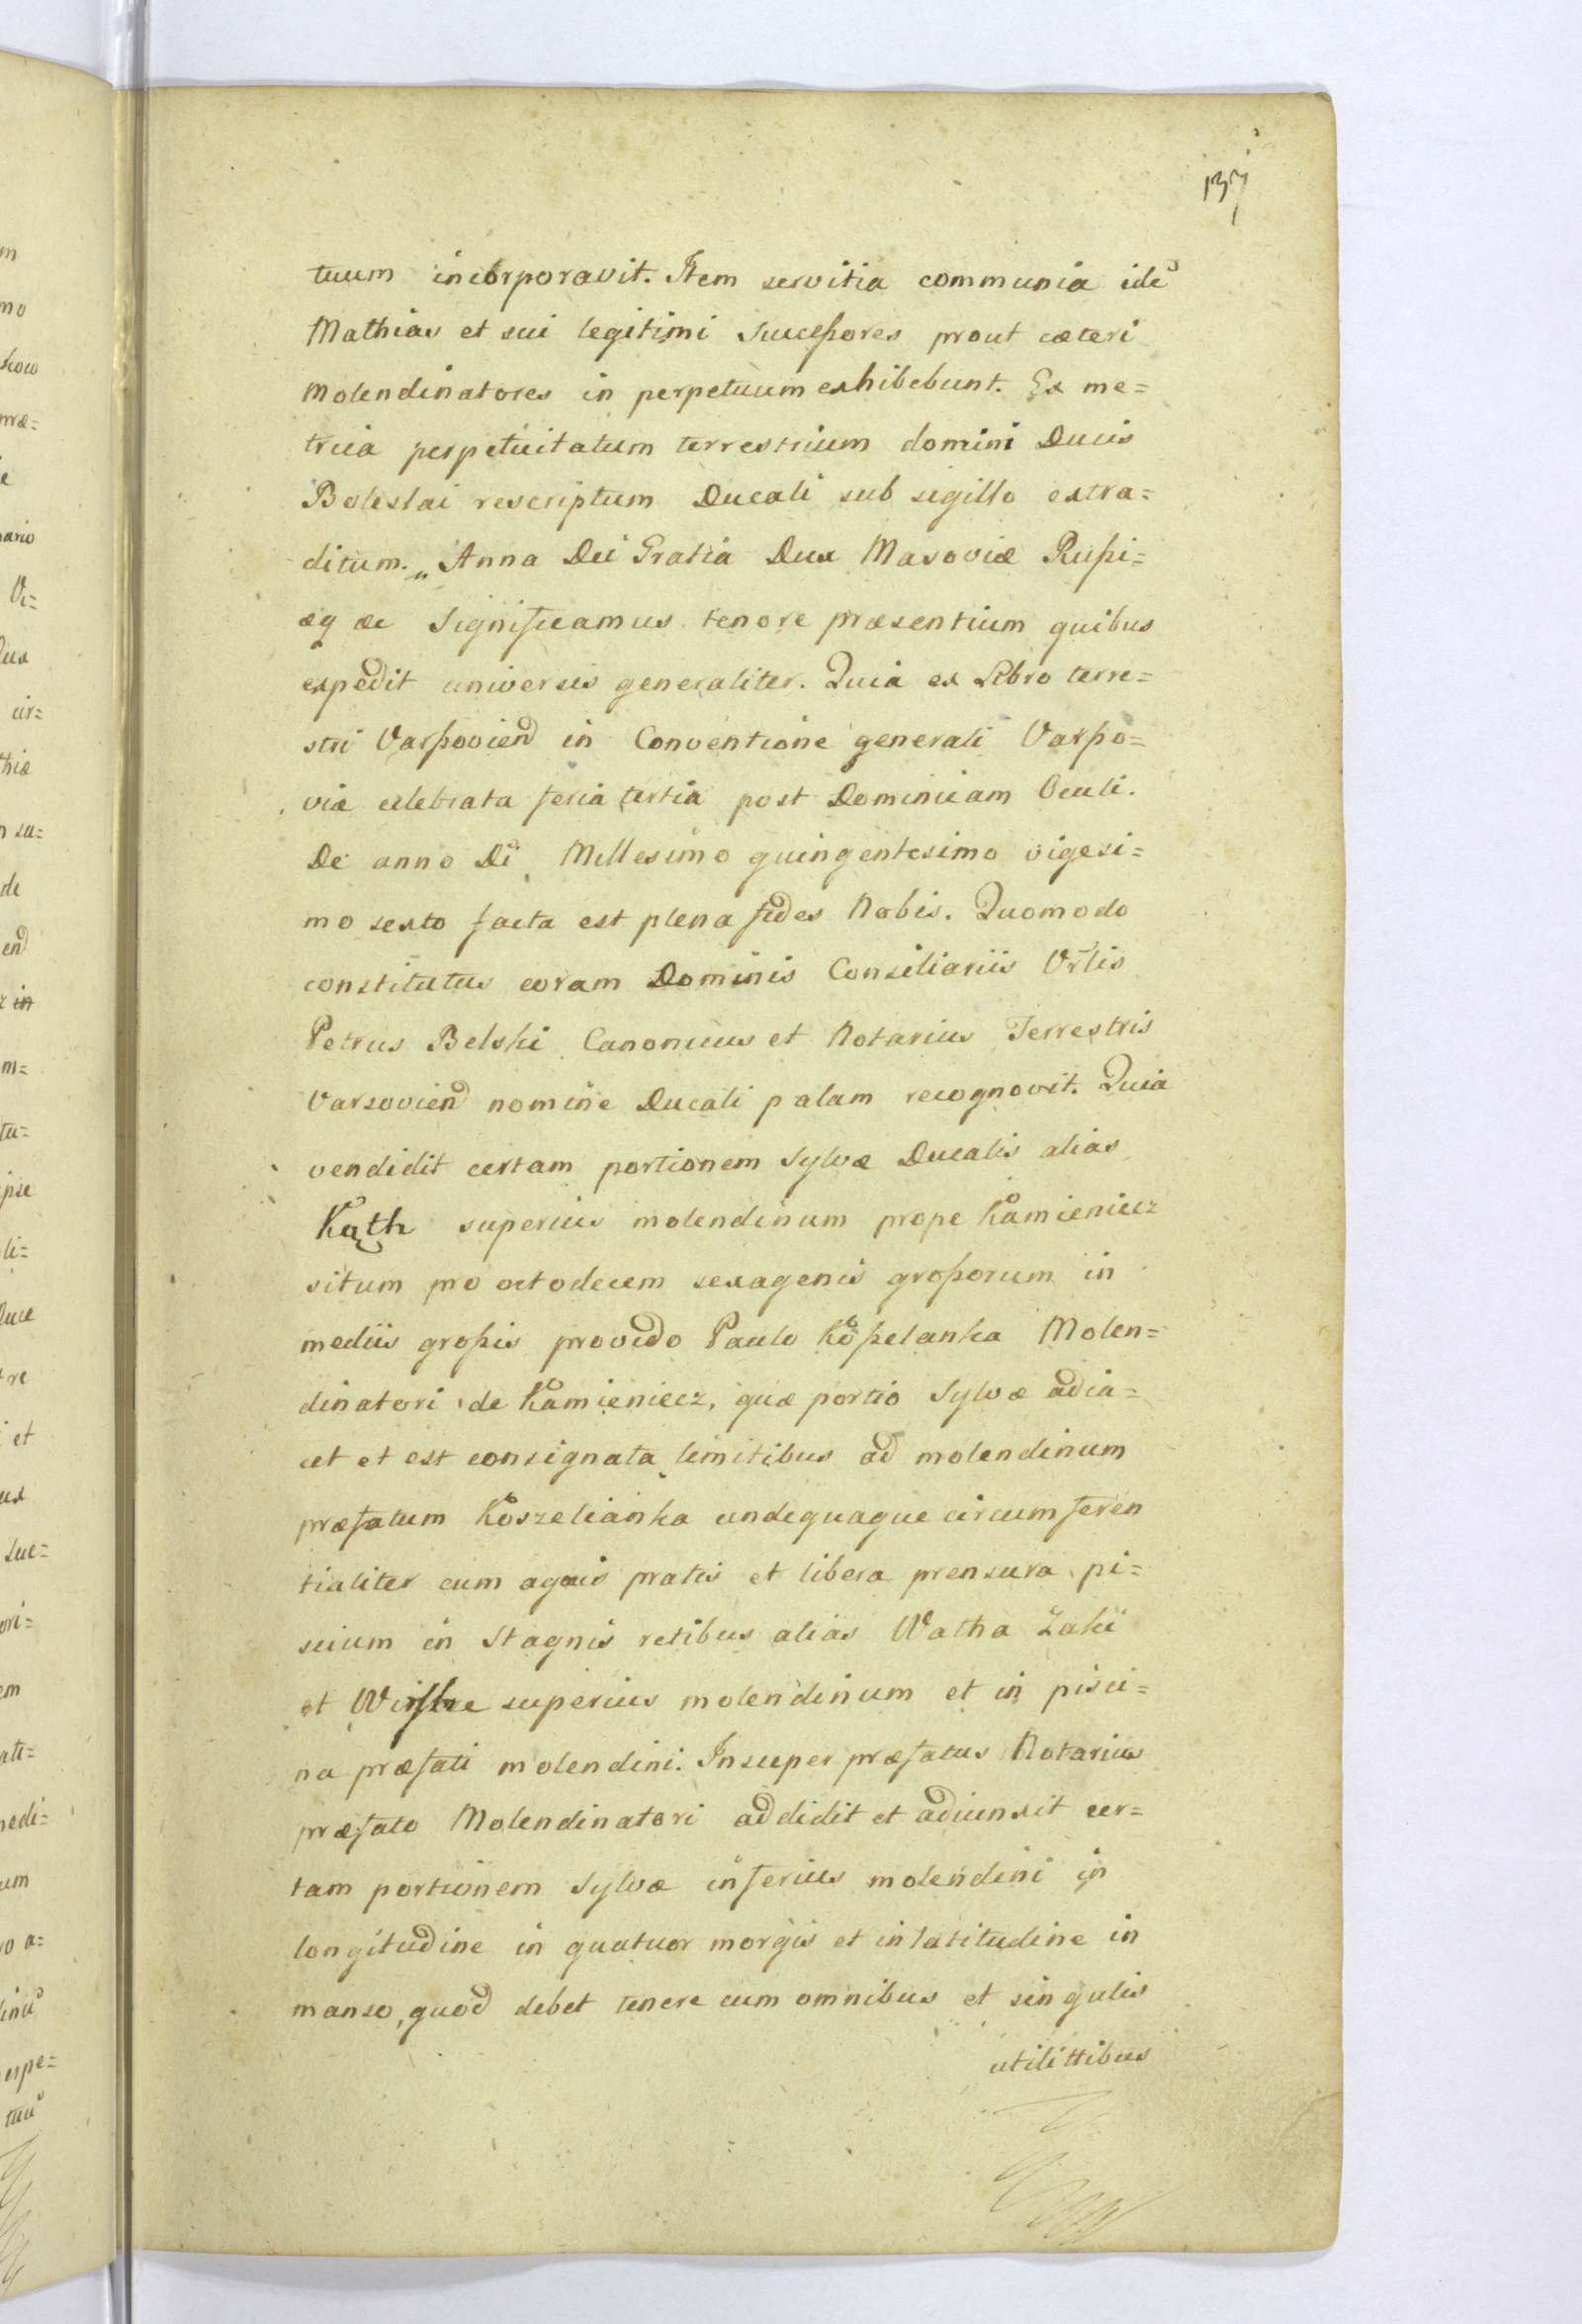 137
tuum incorporavit. Item servitia communia idē
Mathias et sui legitimi Succeßores prout cæteri
Molendinatores in perpetuum exhibebunt. Ex me=
trica perpetuitatum terrestrium domini Ducis
Boleslai rescriptum Ducali sub sigillo extra=
ditum. „Anna Dei Gratia Dux Masoviæ Rußi=
æq æc Significamus tenore præsentium quibus
expedit universis generaliter. Quia ex Libro terre=
stri Varßovien in Conventione generali Varßo=
viæ celebrata feria tertia post Dominicam Oculi.
De anno Di Millesimo quingentesimo vigesi=
mo sexto facta est plena fides Nobis. Quomodo
constitutus coram Dominis Consiliariis Vrlis
Petrus Belski Canonicus et Notarius Terrestris
Varsovien nomine Ducali palam recognovit. Quia
vendidit certam portionem Sylvæ Ducalis alias
Kąth superius molendinum prope Kamieniecz
situm pro octodecem sexagenis großorum in
mediis großis provido Paulo Koßelanka Molen=
dinatori de Kamieniecz, quæ portio Sylvæ adia=
cet et est consignata limitibus ad molendinum
præfatum Koszelianka undequaque circumferen
tialiter cum agris pratis et libera prensura pi=
scium in Stagnis retibus alias Watha Zaki
et superius molendinum et in pisci=
na præfati molendini. Insuper præfatus Notarius
præfato Molendinatori addidit et adiunxit cer=
tam portionem Sylvæ inferius molendini in
longitudine in quatuor morgis et in latitudine in
manso, quod debet tenere cum omnibus et singulis
utilittibus